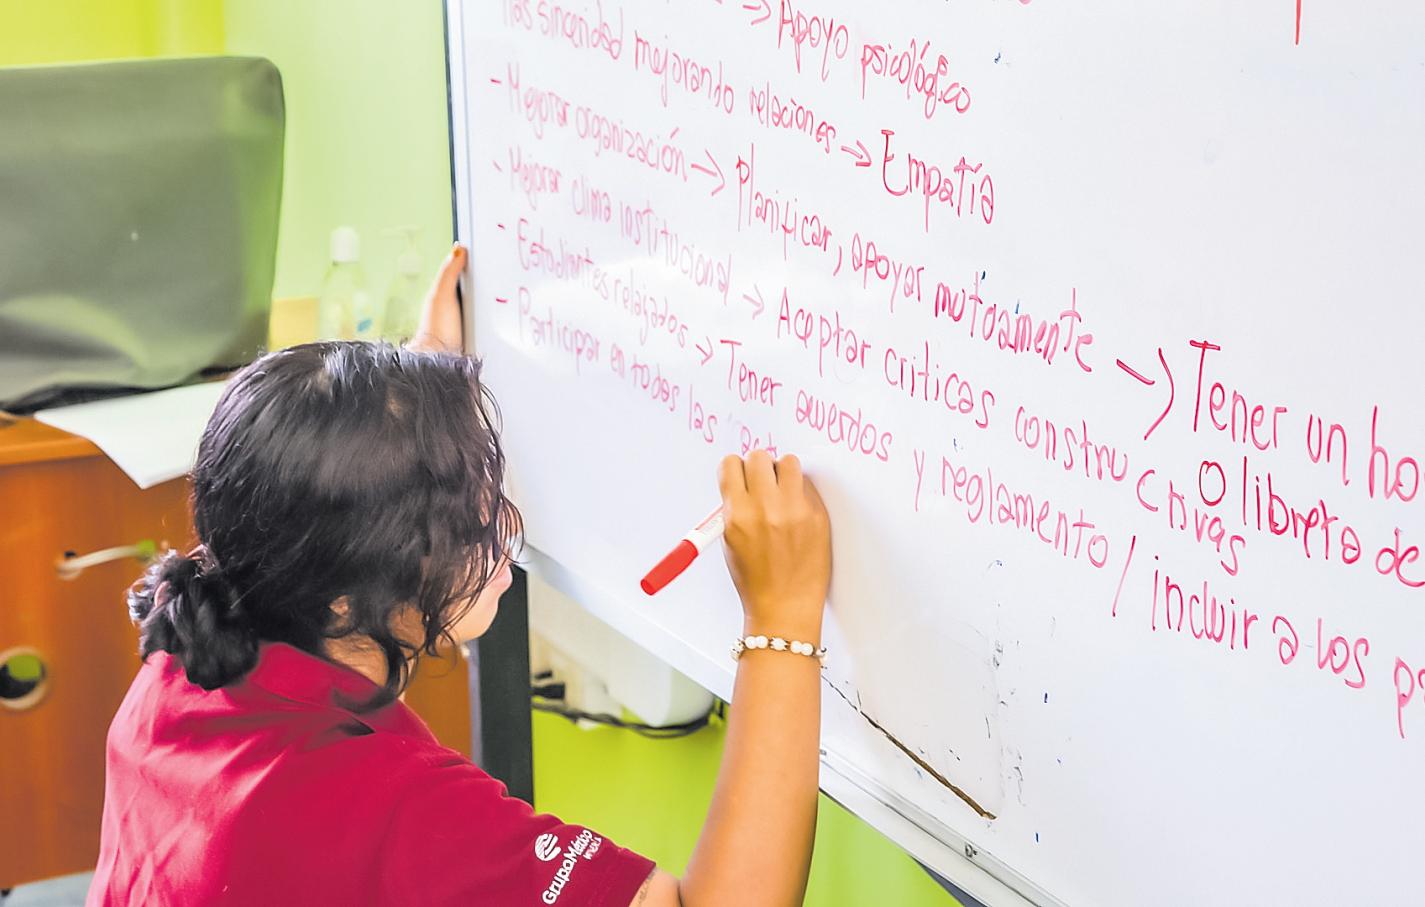 → Apoyo psicológico
Más sinceridad mejorando relaciones → Empatía
- Mejorar organización → Planificar, apoyar mutuamente → Tener un
O libreta de
- Mejorar clima institucional → Aceptar criticas constructivas
- Estudiantes relajados → Tener acuerdos y reglamento / incluir a los
- Participar en todas las
GrupoMéxico